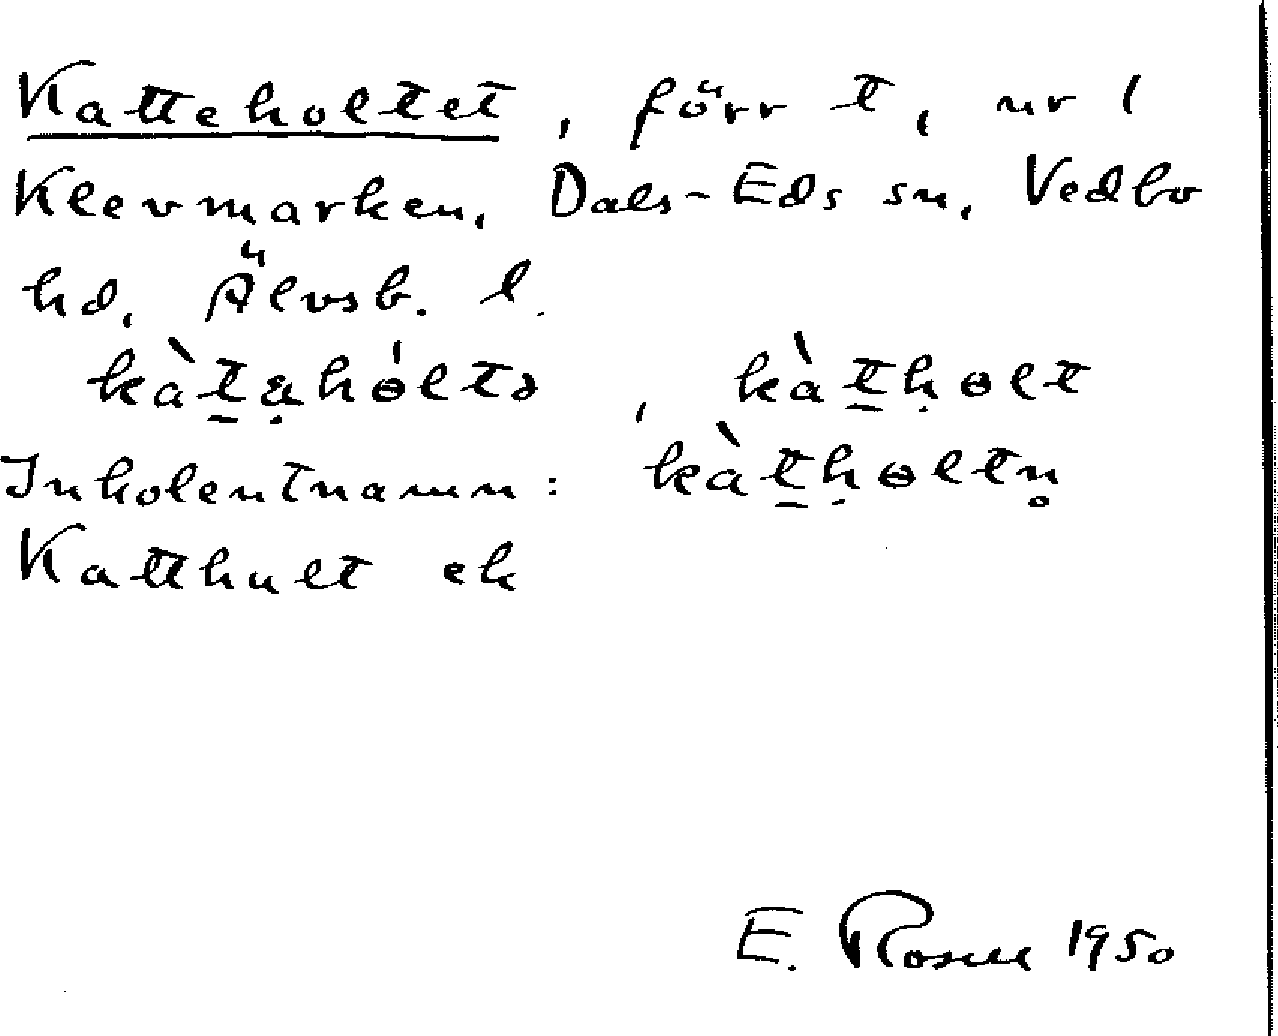 Katteholtet, förr t, nr 1
Klevmarken, Dals-Eds sn, Vedbo
hd, Älvsb. l.
kàt̠ạhó̵ltə, kàt̠ḥɵlt
Inkolentnamn: kàt̠ḥɵltn̥
Katthult ek
E. Rosell 1950